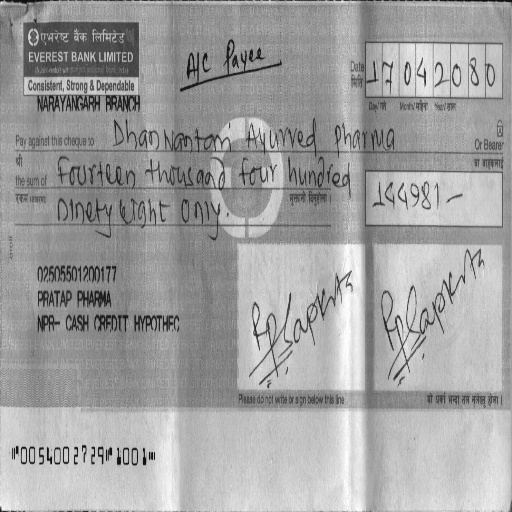 एभरेष्ट बैंक लिमिटेड
EVEREST BANK LIMITED
Consistent, Strong & Dependable
NARAYANGARH BRANCH
A/C Payee
Date 17042080
मिति
Day/गते Month/महिना Year/साल
Pay against this cheque to Dhanvantari Ayurved Pharma Or Bearer
श्री वा वाहकलाई
the sum of Fourteen thousand four hundred
रकम भुक्तानी दिनुहोला ।
Ninety eight only. 14498/-
02505501200177
PRATAP PHARMA
NPR- CASH CREDIT HYPOTHEC
Please do not write or sign below this line
⑈0054002729⑈1001⑈